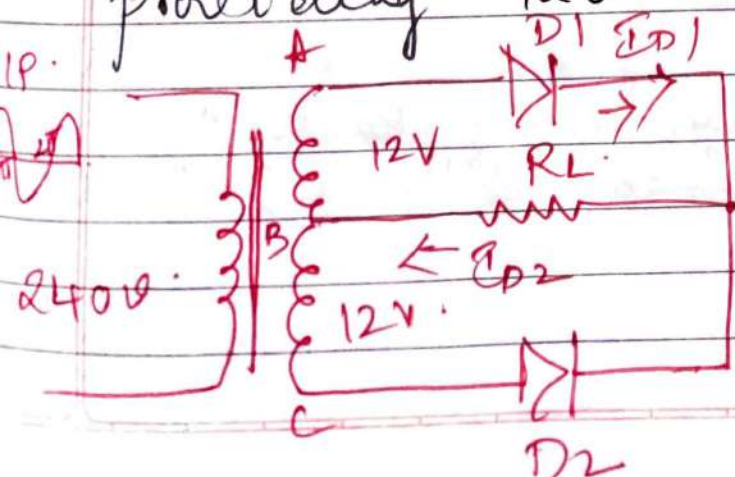 A
D1 ID1
IP.
12V
RL.
B
← ID2
240v
12V.
C
D2